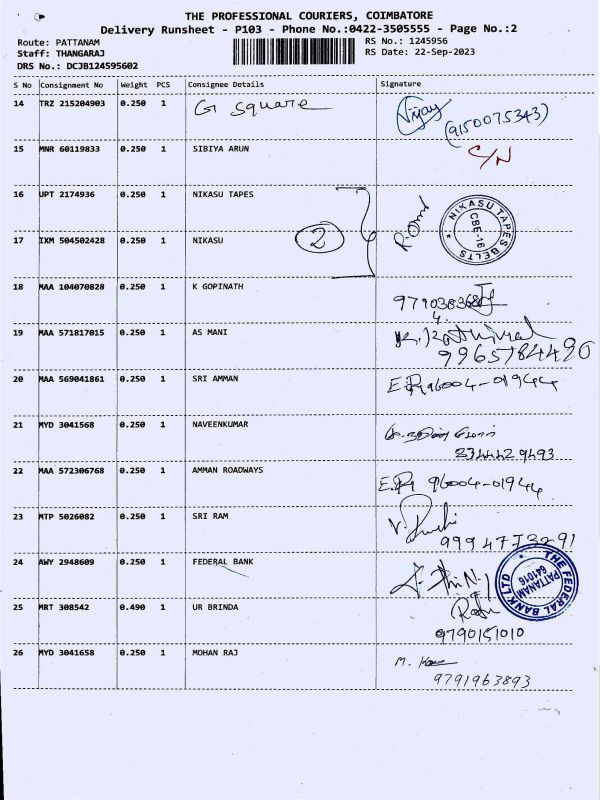 THE PROFESSIONAL COURIERS, COIMBATORE
Delivery Runsheet - P103 - Phone No.:0422-3505555 - Page No.:2
Route: PATTANAM
RS No.: 1245956
Staff: THANGARAJ
RS Date: 22-Sep-2023
DRS No.: DCJB124595602
S No Consignment No Weight PCS Consignee Details Signature
14 TRZ 215204903 0.250 1 G Square Vijay
(9150075343)
15 MNR 60119833 0.250 1 SIBIYA ARUN C/N
16 UPT 2174936 0.250 1 NIKASU TAPES
NIKASU TAPES BELTS
CBE-16
17 IXM 504502428 0.250 1 NIKASU 2
18 MAA 104070828 0.250 1 K GOPINATH
19 MAA 571817015 0.250 1 AS MANI
9965784490
20 MAA 569041861 0.250 1 SRI AMMAN 96004-01944
21 MYD 3041568 0.250 1 NAVEENKUMAR
22 MAA 572306768 0.250 1 AMMAN ROADWAYS 96004-01944
23 MTP 5026082 0.250 1 SRI RAM
9994773291
24 AWY 2948609 0.250 1 FEDERAL BANK
THE FEDERAL BANK LTD
PATTANAM
641016
25 MRT 308542 0.490 1 UR BRINDA
9790151010
26 MYD 3041658 0.250 1 MOHAN RAJ M.
9791963893